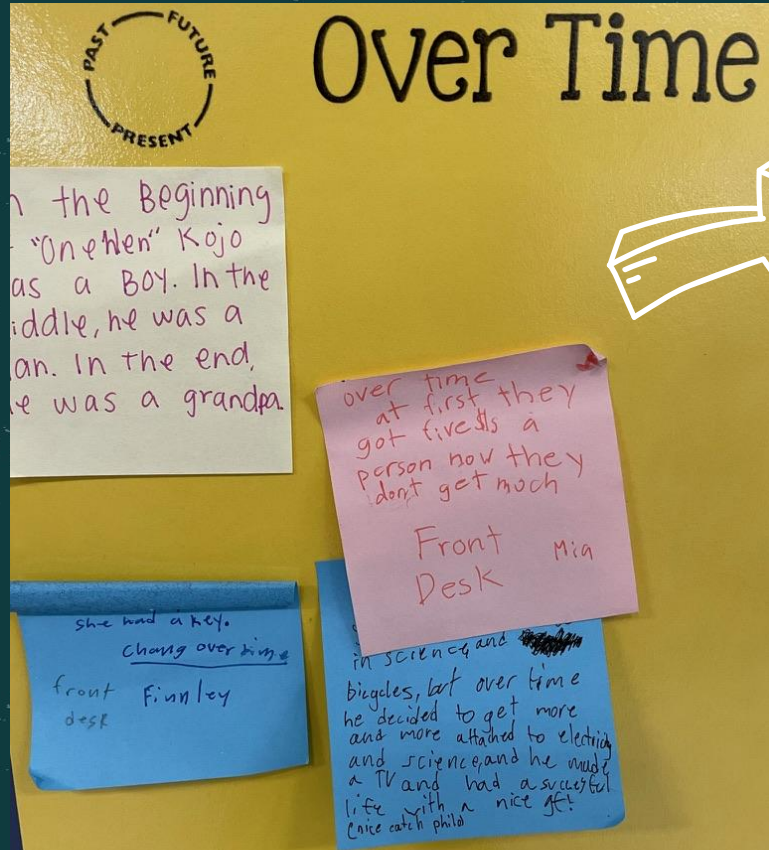 PAST
FUTURE
PRESENT
Over Time
the Beginning
"One Hen" Kojo
as a BOY. In the
iddle, he was a
an. In the end,
e was a grandpa.
over time
at first they
got five $s a
person now they
don't get much
Front
Desk
Mia
she had a key.
chang over time
front
desk
Finnley
in science, and
bicycles, but over time
he decided to get more
and more attached to electricity
and science, and he made
a TV and had a succesful
life with a nice gf!
(nice catch philo